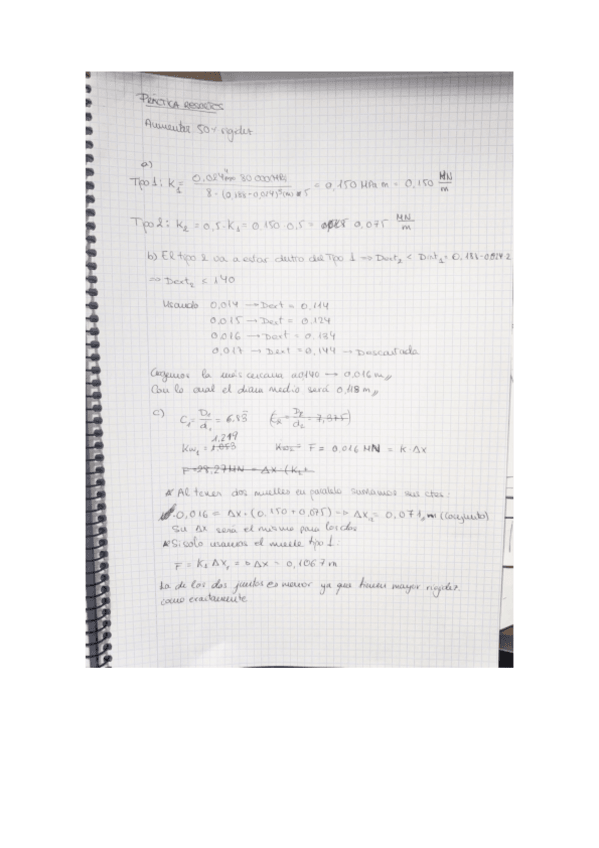 PRÁCTICA RESORTES
Aumentar 50% rigidez
a)
Tipo 1: K₁ = 0,024⁴ · 80 000 MPa / 8 · (0,188 - 0,024)³ = 0,150 MPa m = 0,150 MN/m
Tipo 2: K₂ = 0,5 · K₁ = 0,150 · 0,5 = 0,075 MN/m
b) El tipo 2 va a estar dentro del Tipo 1 ⇒ Dext₂ < Dint₁ = 0,188 - 0,024·2
⇒ Dext₂ < 140
Usando 0,014 → Dext = 0,114
0,015 → Dext = 0,124
0,016 → Dext = 0,134
0,017 → Dext = 0,144 → Descartada
Cogemos la más cercana a 0,140 → 0,016 m
Con lo cual el diam medio será 0,118 m
c) C₁ = D₁/d₁ = 6.83
Kw₁ = 1.219 F = 0,016 MN = K · Δx
* Al tener dos muelles en paralelo sumamos sus ctes:
0,016 = Δx · (0,150 + 0,075) → Δx = 0,071 m (conjunto)
Su Δx será el mismo para los dos
* Si solo usamos el muelle tipo 1:
F = K₁ Δx₁ ⇒ Δx = 0,1067 m
La de los dos juntos es menor ya que tienen mayor rigidez